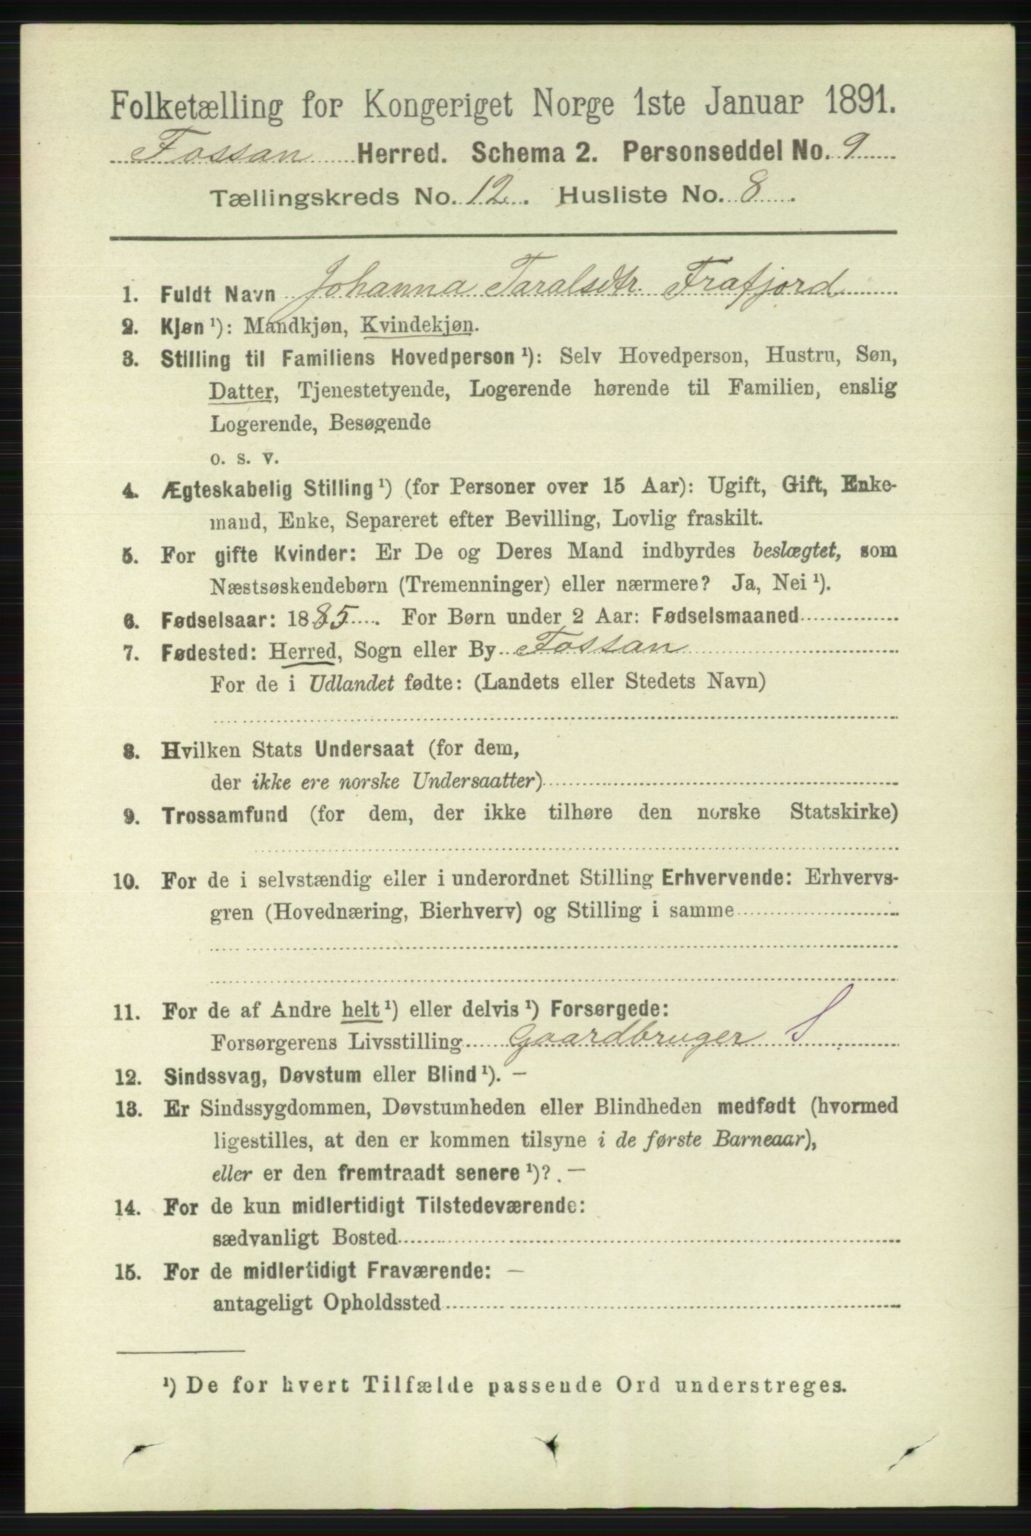 Folketælling for Kongeriget Norge 1ste Januar 1891.
Fossan Herred. Schema 2. Personseddel No. 9
Tællingskreds No. 12. Husliste No. 8.
1. Fuldt Navn Johanna Taralsdtr. Frafjord
2. Kjøn ¹): Mandkjøn, Kvindekjøn.
3. Stilling til Familiens Hovedperson ¹): Selv Hovedperson, Hustru, Søn,
Datter, Tjenestetyende, Logerende hørende til Familien, enslig
Logerende, Besøgende
o. s. v.
4. Ægteskabelig Stilling ¹) (for Personer over 15 Aar): Ugift, Gift, Enke-
mand, Enke, Separeret efter Bevilling, Lovlig fraskilt.
5. For gifte Kvinder: Er De og Deres Mand indbyrdes beslægtet, som
Næstsøskendebørn (Tremenninger) eller nærmere? Ja, Nei ¹).
6. Fødselsaar: 1885. For Børn under 2 Aar: Fødselsmaaned
7. Fødested: Herred, Sogn eller By Fossan
For de i Udlandet fødte: (Landets eller Stedets Navn)
8. Hvilken Stats Undersaat (for dem,
der ikke ere norske Undersaatter)
9. Trossamfund (for dem, der ikke tilhøre den norske Statskirke)
10. For de i selvstændig eller i underordnet Stilling Erhvervende: Erhvervs-
gren (Hovednæring, Bierhverv) og Stilling i samme
11. For de af Andre helt ¹) eller delvis ¹) Forsørgede:
Forsørgerens Livsstilling Gaardbruger S
12. Sindssvag, Døvstum eller Blind ¹). —
13. Er Sindssygdommen, Døvstumheden eller Blindheden medfødt (hvormed
ligestilles, at den er kommen tilsyne i de første Barneaar),
eller er den fremtraadt senere ¹)? —
14. For de kun midlertidigt Tilstedeværende:
sædvanligt Bosted
15. For de midlertidigt Fraværende: —
antageligt Opholdssted
¹) De for hvert Tilfælde passende Ord understreges.